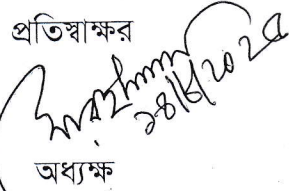 প্রতিস্বাক্ষর
১৪/৮/২০২৫
অধ্যক্ষ